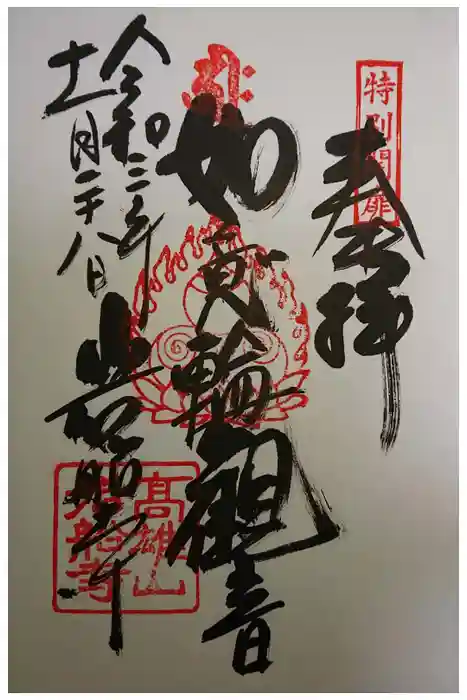 特別開扉
奉拝
如意輪觀音
令和二年
十一月二十八日
岩船寺
高雄山
岩船寺